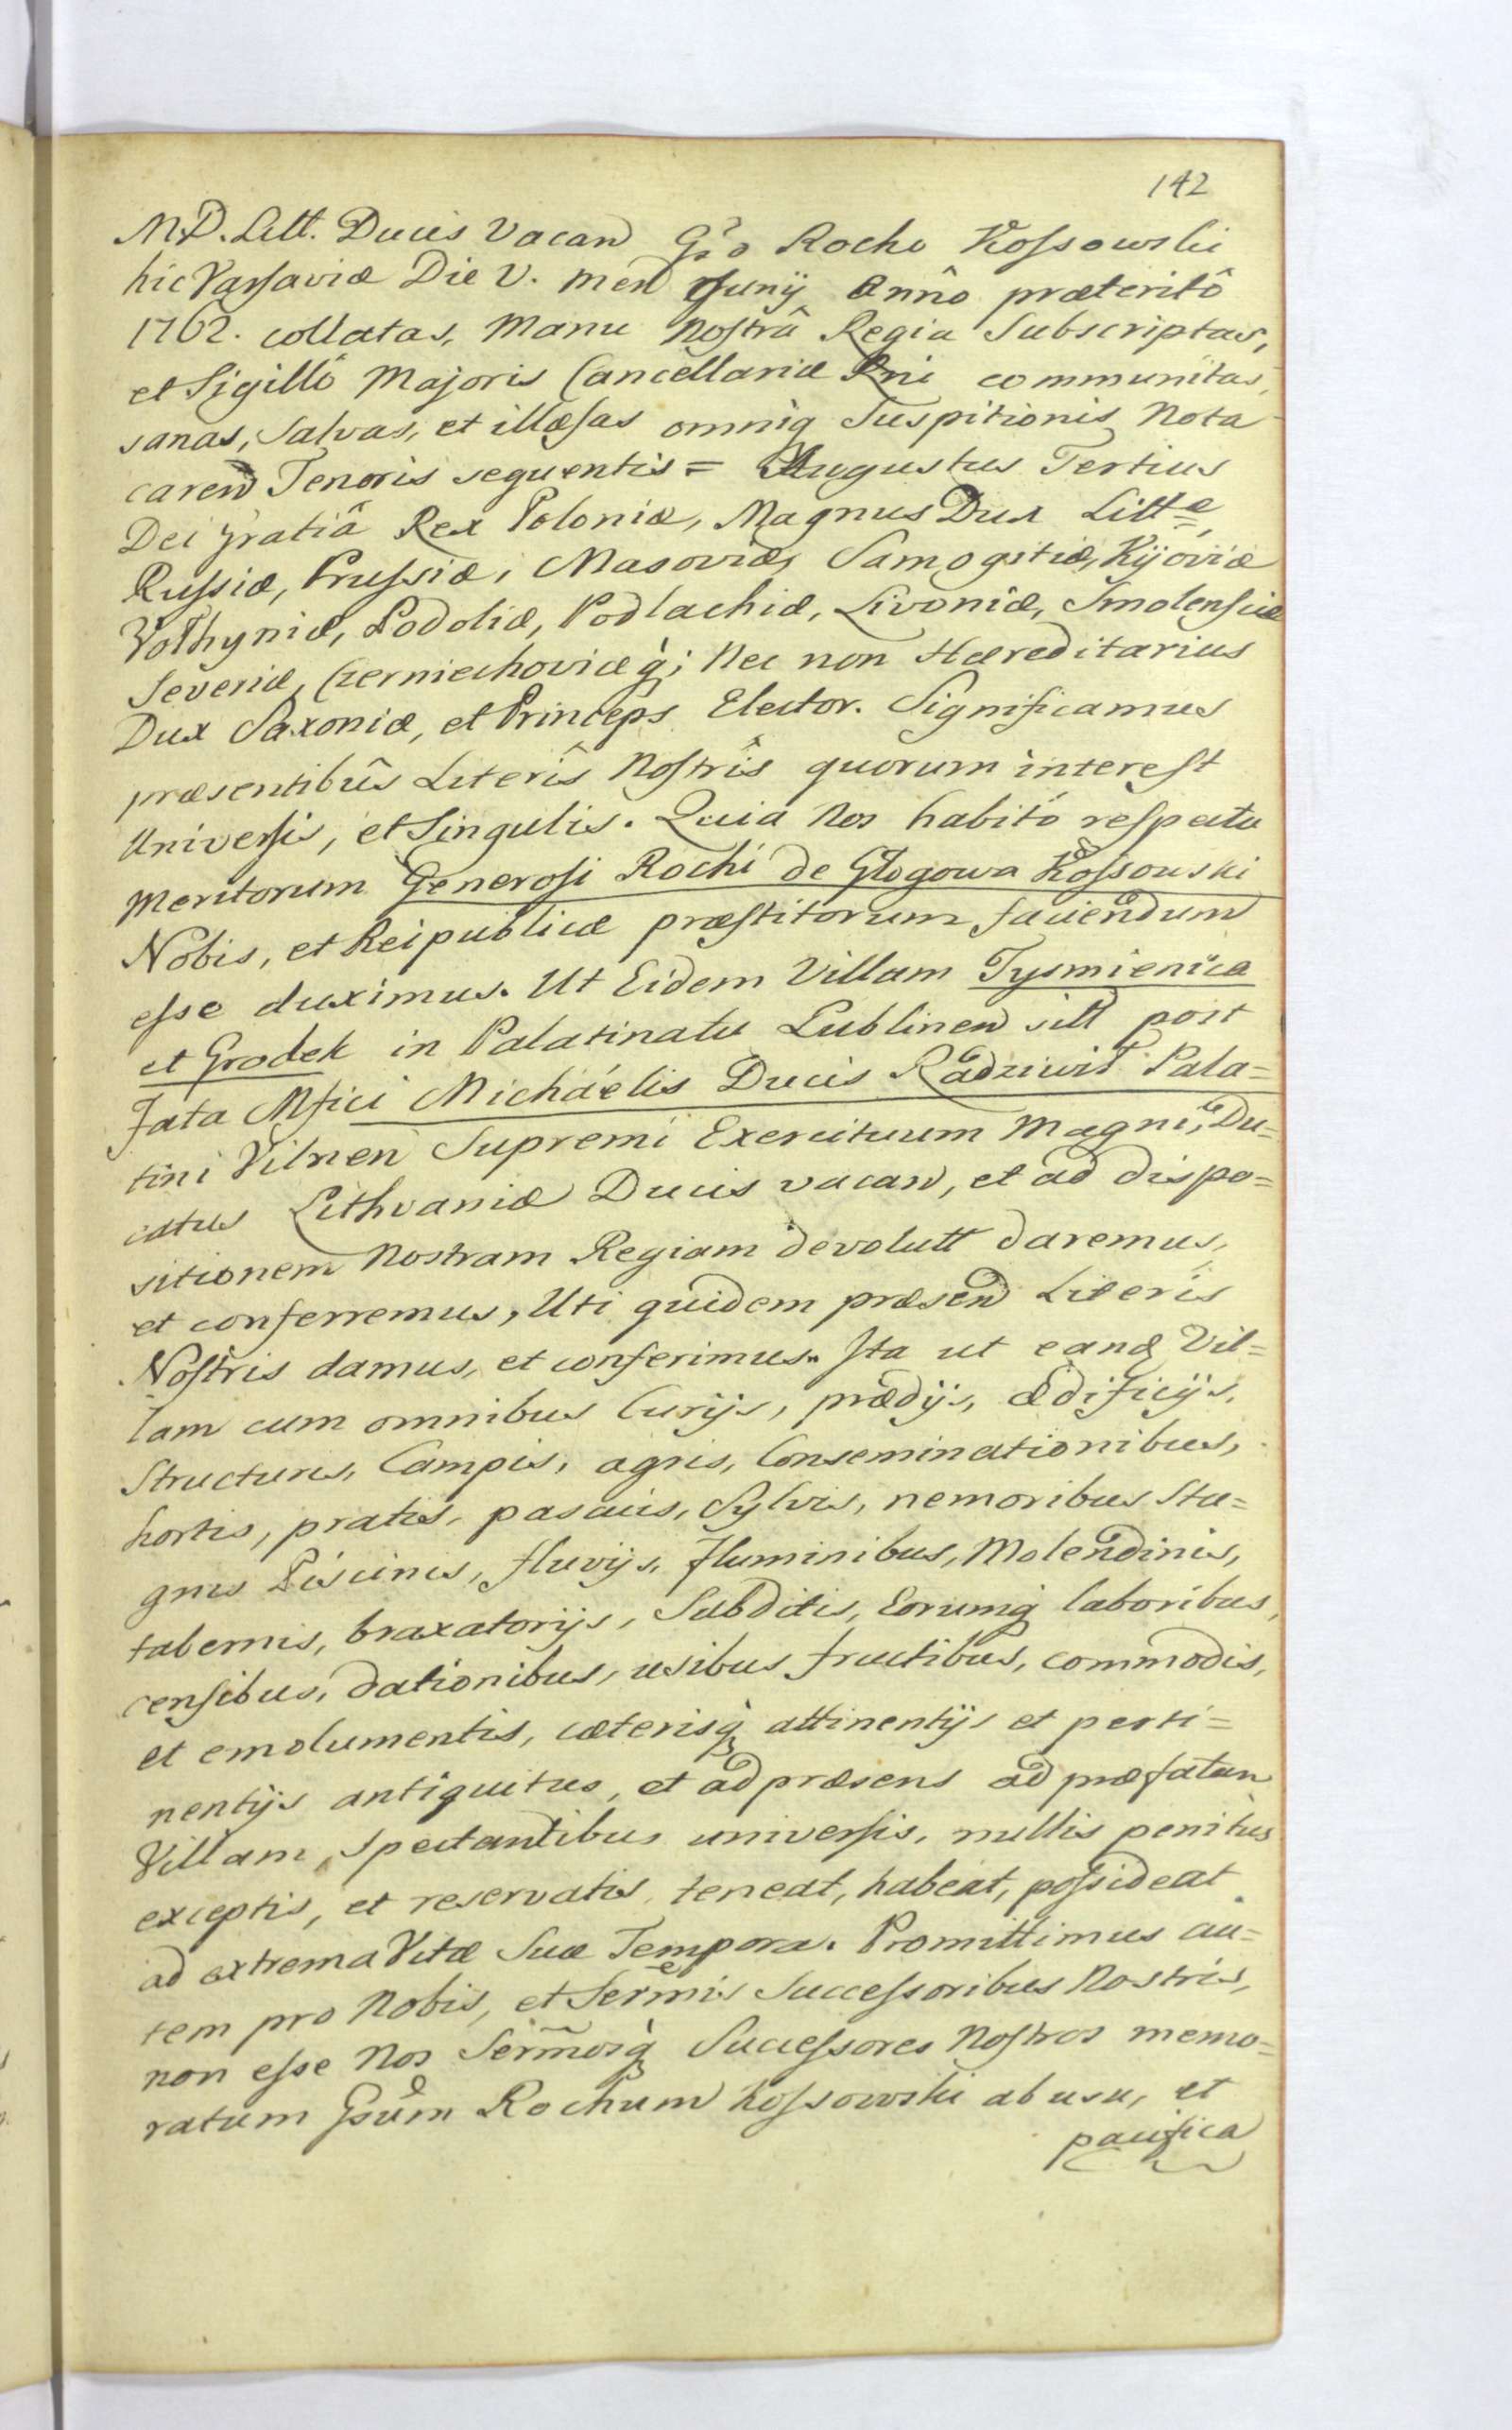 142
M.D. Litt. Ducis Vacan Gso Rocho Kossowski
hic Varsaviæ Die V. men Junij Annô præteritô
1762. collatas, Manu Nostrâ Regia Subscriptas,
et Sigillô Majoris Cancellariæ Rni communitas,
sanas, Salvas, et illæsas omniq Suspitionis Nota
caren Tenoris sequentis = Augustus Tertius
Dei gratiâ Rex Poloniæ, Magnus Dux Litt=e,
Russiæ, Prussiæ, Masoviæ, Samogitiæ, Kijoviæ
Vołhyniæ, Podoliæ, Podlachiæ, Livoniæ, Smolensciæ
Severiæ, Czerniechoviæq; Nec non Hæreditarius
Dux Saxoniæ, et Princeps Elector. Significamus
præsentibûs Literîs Nostrîs quorum interest
Universis, et Singulis. Quia Nos habitô respectu
Meritorum Generosi Rochi de Głogowa Kossowski
Nobis, et Reipublicæ præstitorum faciendum
esse duximus. Ut Eidem Villam Tysmienica
et Grodek in Palatinatu Lublinen sitt post
Fata Mfici Michaelis Ducis Radziwił Pala=
tini Vilnen Supremi Exercituum Magni, Du=
catus Lithvaniæ Ducis vacan, et ad dispo=
sitionem Nostram Regiam devolutt daremus,
et conferremus, Uti quidem præsen Literis
Nostris damus, et conferimus. Ita ut eand Vil=
lam cum omnibus Curijs, prædijs, Ædificijs,
Structuris, Campis, agris, Conseminationibus,
hortis, pratis, pascuis, Sylvis, nemoribus Sta=
gnis Piscinis, fluvijs, Fluminibus, Molendinis,
tabernis, braxatorijs, Subditis, Eorumq laboribus,
censibus, dationibus, usibus fructibus, commodis,
et emolumentis, cæterisq attinentijs et perti=
nentijs antiquitus, et ad præsens ad præfatam
Villam, Spectantibus universis, nullis penitùs
exceptis, et reservatis, teneat, habeat, possideat
ad extrema Vitæ Suæ Tempora. Promittimus au=
tem pro Nobis, et Sermis Successoribus Nostris,
non esse Nos Sermosq Successores Nostros memo=
ratum Gsum Rochum Kossowski ab usu, et
pacifica